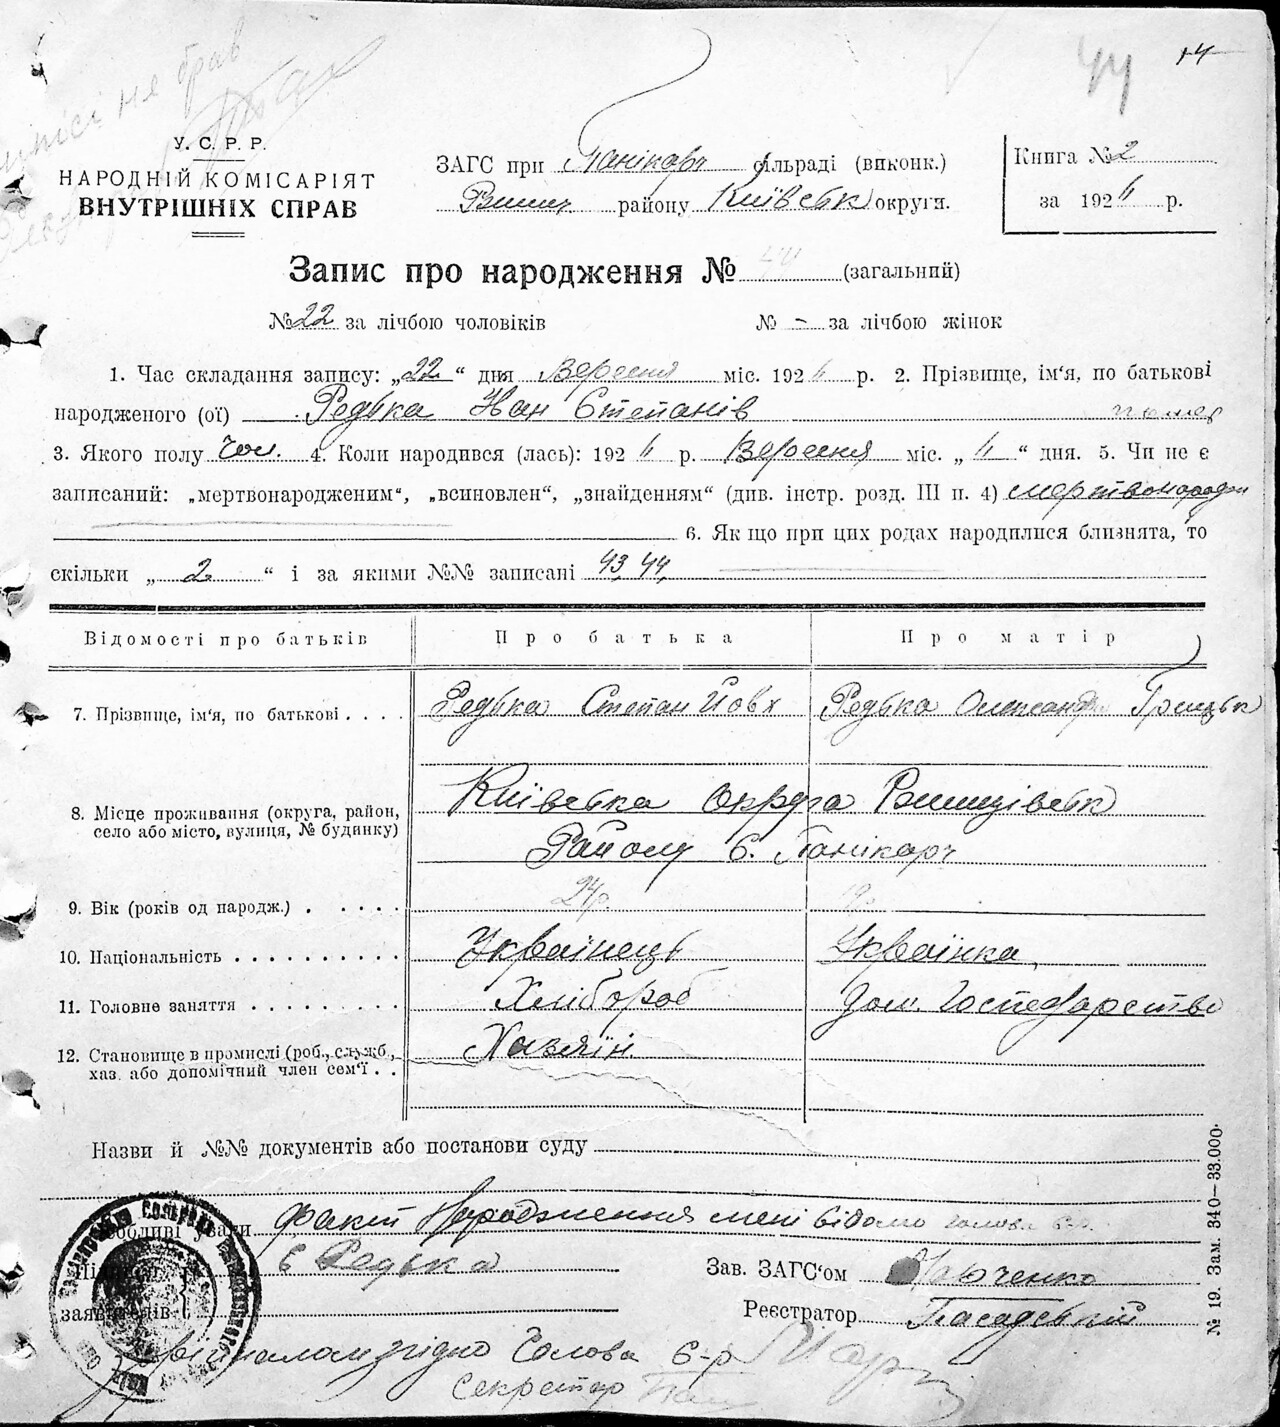 44 14
не брав
У. С. Р. Р.
НАРОДНІЙ КОМІСАРІЯТ
ВНУТРІШНІХ СПРАВ
ЗАГС при Панікарч сільраді (виконк.)
Ржищ. району Київськ округи.
Книга № 2
за 192 р.
Запис про народження № 44 (загальний)
№ 22 за лічбою чоловіків № - за лічбою жінок
1. Час складання запису: „22“ дня Вересня міс. 192 р. 2. Прізвище, ім'я, по батькові
народженого (ої) Редька Іван Степанів помер
3. Якого полу чол. 4. Коли народився (лась): 192 р. Вересня міс. „ “ дня. 5. Чи не є
записаний: „мертвонародженим“, „всиновлен“, „знайденням“ (див. інстр. розд. III п. 4) мертвонародж
6. Як що при цих родах народилися близнята, то
скільки „2“ і за якими №№ записані 43, 44,
Відомості про батьків Про батька Про матір
7. Прізвище, ім'я, по батькові . . . . Редька Степан Йовх Редька Олександра Грицьк
8. Місце проживання (округа, район,
село або місто, вулиця, № будинку)
Київська округа Ржищівськ
Району с. Панікарч
9. Вік (років од народж.) . . . . . 24р. 19р.
10. Національність . . . . . . . . . . Українець Українка,
11. Головне заняття . . . . . . . . . Хлібороб Дом. Господарство
12. Становище в промислі (роб., служб.,
хаз. або допомічний член сем'ї . . Хазяїн.
Назви й №№ документів або постанови суду
Особливі уваги Факт Народження мені відомо голова с.р.
Підпис
заявителів
є Редька
Зав. ЗАГС'ом
Реєстратор Пасадський
згідно Голова с-р
Секретар
№ 19. Зам. 340—33.000.